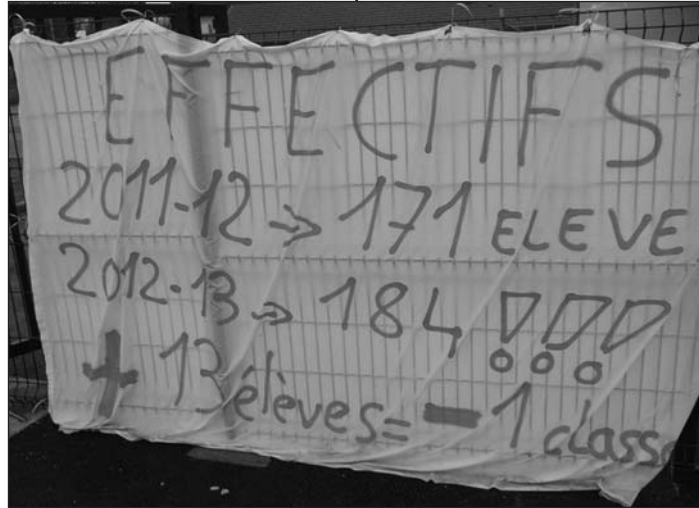 EFFECTIFS
2011-12 → 171 ELEVE
2012-13 → 184 !!!
+ 13 élèves = - 1 classe